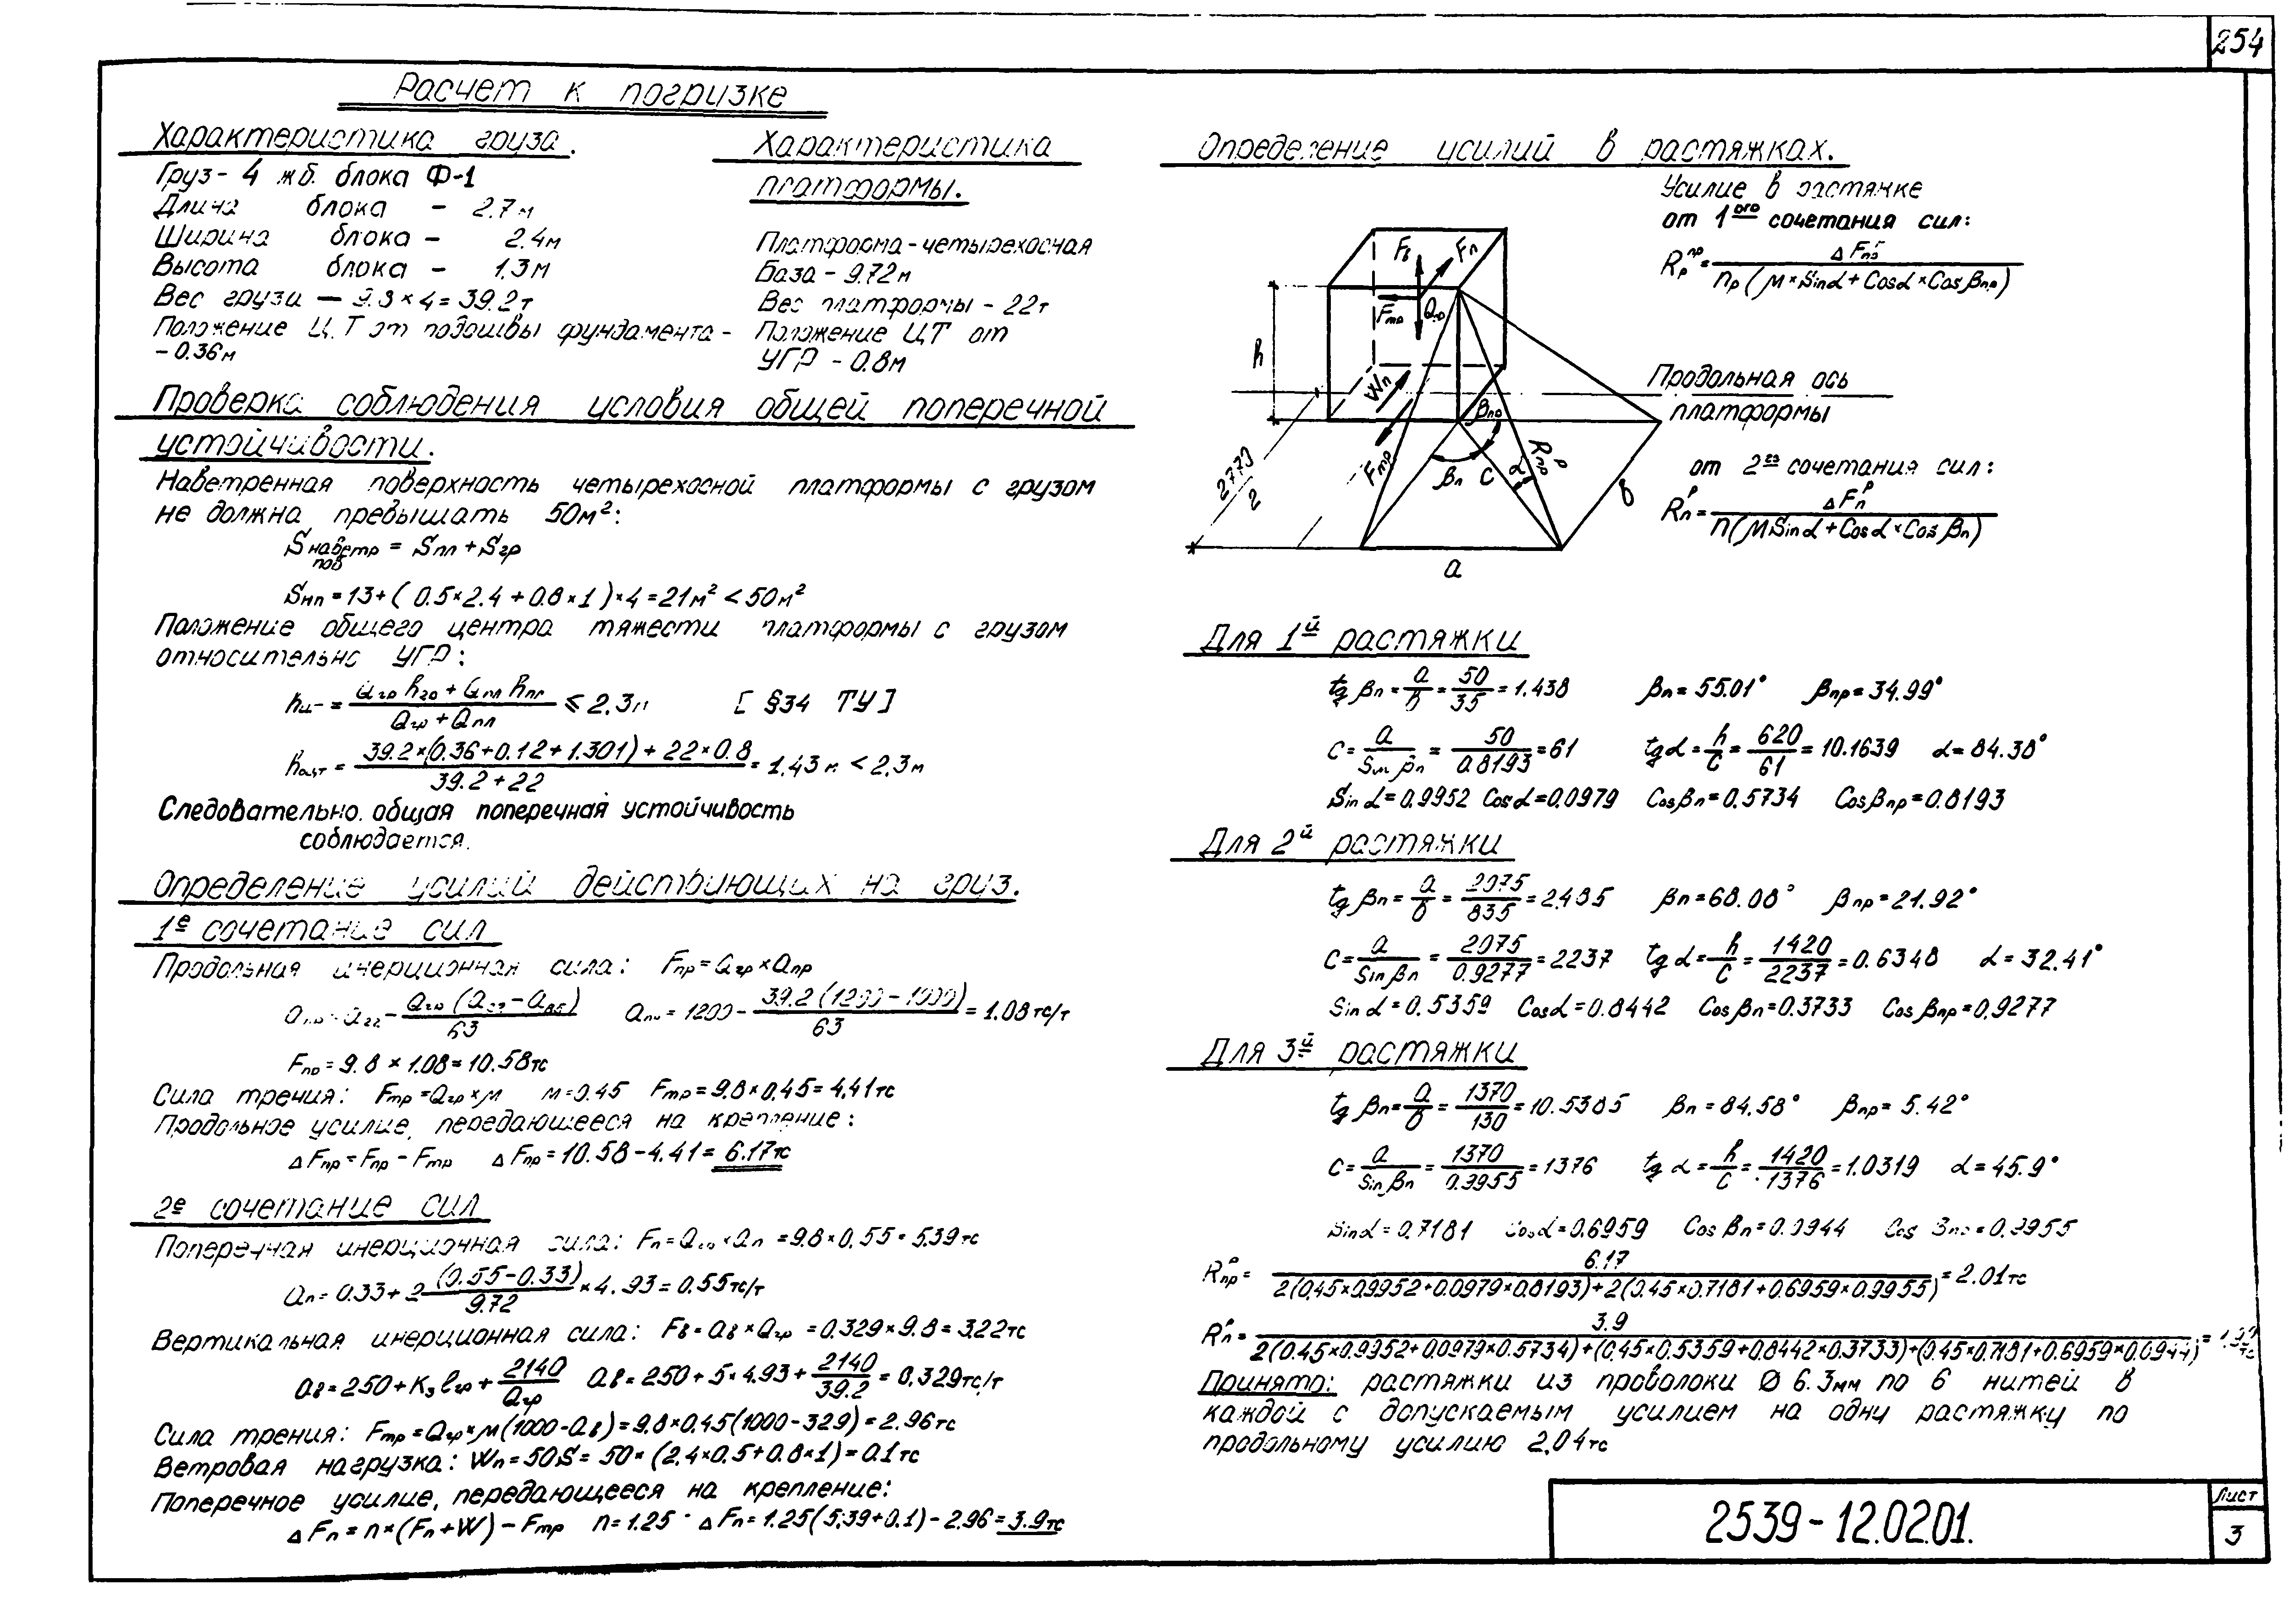 254
Расчет к погрузке
Характеристика груза.
Груз- 4 жб. блока Ф-1
Длина блока - 2.7м
Ширина блока - 2.4м
Высота блока - 1.3м
Вес груза — 9.8×4=39.2т
Положение Ц.Т от подошвы фундамента -
- 0.36м
Характеристика
платформы.
Платформа - четырехосная
База - 9.72м
Вес платформы - 22т
Положение ЦТ от
УГР - 0.8м
Проверка соблюдения условия общей поперечной
устойчивости.
Наветренная поверхность четырехосной платформы с грузом
не должна превышать 50м²:
Sнаветр пов = Sпл + Sгр
Sнп = 13+( 0.5×2.4 + 0.8×1 )×4 = 21м² < 50м²
Положение общего центра тяжести платформы с грузом
относительно УГР:
= (Qгр hгр + Qпл hпл) / (Qгр + Qпл) ≤ 2.3м [ §34 ТУ ]
hоцт = (39.2×(0.36+0.12+1.301) + 22×0.8) / (39.2+22) = 1.43м < 2.3м
Следовательно. общая поперечная устойчивость
соблюдается.
Определение усилий действующих на груз.
1е сочетание сил
Продольная инерционная сила: Fпр = Qгр × aпр
aпр = a22 - Qгр (a22 - a85) / 63 aпр = 1200 - 39.2 (1200 - 1000) / 63 = 1.08тс/т
Fпр = 9.8 × 1.08 = 10.58тс
Сила трения: Fтр = Qгр×м м=0.45 Fтр = 9.8×0.45 = 4.41тс
Продольное усилие, передающееся на крепление:
ΔFпр = Fпр - Fтр ΔFпр = 10.58 - 4.41 = 6.17тс
2е сочетание сил
Поперечная инерционная сила: Fп = Qгр × aп = 9.8×0.55 = 5.39тс
aп = 0.33 + 2 (0.55-0.33) / 9.72 × 4.93 = 0.55тс/т
Вертикальная инерционная сила: Fв = aв × Qгр = 0.329×9.8 = 3.22тс
aв = 250 + Kз lгр + 2140 / Qгр aв = 250 + 5×4.93 + 2140 / 39.2 = 0.329тс/т
Сила трения: Fтр = Qгр×м(1000-aв) = 9.8×0.45(1000-329) = 2.96тс
Ветровая нагрузка: Wп = 50S = 50×(2.4×0.5+0.8×1) = 0.1тс
Поперечное усилие, передающееся на крепление:
ΔFп = n×(Fп+W) - Fтр n = 1.25 · ΔFп = 1.25(5.39+0.1) - 2.96 = 3.9тс
Определение усилий в растяжках.
Усилие в растяжке
от 1ого сочетания сил:
Rрпр = ΔFпр / nр(м×Sinα + Cosα×Cosβпр)
Fв
Fп
Fтр
Qгр
h
Wп
βпр
Fтр
βп
c
α
Rпрр
в
2770/2
a
Продольная ось
платформы
от 2го сочетания сил:
Rпр = ΔFпр / n(мSinα + Cosα×Cosβп)
Для 1й растяжки
tg βп = a/в = 50/35 = 1.438 βп = 55.01° βпр = 34.99°
c = a / Sin βп = 50 / 0.8193 = 61 tgα = h/c = 620/61 = 10.1639 α = 84.38°
Sin α = 0.9952 Cosα = 0.0979 Cosβп = 0.5734 Cosβпр = 0.8193
Для 2й растяжки
tg βп = a/в = 2075/835 = 2.485 βп = 68.08° βпр = 21.92°
c = a / Sin βп = 2075 / 0.9277 = 2237 tg α = h/c = 1420/2237 = 0.6348 α = 32.41°
Sin α = 0.5359 Cosα = 0.8442 Cosβп = 0.3733 Cosβпр = 0.9277
Для 3й растяжки
tg βп = a/в = 1370/130 = 10.5385 βп = 84.58° βпр = 5.42°
c = a / Sin βп = 1370 / 0.9955 = 1376 tg α = h/c = 1420/1376 = 1.0319 α = 45.9°
Sinα = 0.7181 Cosα = 0.6959 Cos βп = 0.0944 Cos βпр = 0.9955
Rпрр = 6.17 / 2(0.45×0.9952+0.0979×0.8193)+2(0.45×0.7181+0.6959×0.9955) = 2.01тс
Rпр = 3.9 / 2(0.45×0.9952+0.0979×0.5734)+(0.45×0.5359+0.8442×0.3733)+(0.45×0.7181+0.6959×0.0944) =
Принято: растяжки из проволоки Ø 6.3мм по 6 нитей в
каждой с допускаемым усилием на одну растяжку по
продольному усилию 2.04тс
2539-12.02.01.
Лист
3